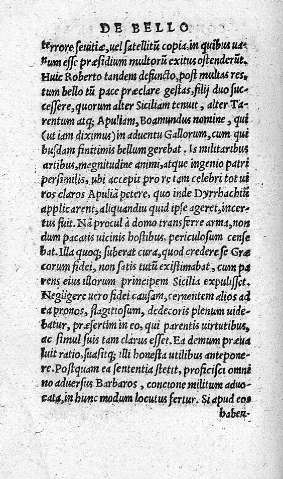 DE BELLO
terrore sęvitię, vel satellitū copia, in quibus va-
num esse præsidium multorū exitus ostenderūt.
Huic Roberto tandem defuncto, post multas res,
tum bello tū pace præclare gestas, filij duo suc-
cessere, quorum alter Siciliam tenuit, alter Ta-
rentum atq; Apuliam, Boamundus nomine, qui
(ut iam diximus) in adventu Gallorum, cum qui
busdam finitimis bellum gerebat. Is militaribus
artibus, magnitudine animi, atque ingenio patri
persimilis, ubi accepit pro re tam celebri tot vi
ros claros Apuliā petere, quo inde Dyrrhachiū
applicarent, aliquandiu quid ipse ageret, incer-
tus fuit. Nā procul à domo transferre arma, non
dum pacatis vicinis hostibus, periculosum cense
bat. Illa quoq; suberat cura, quod credere se Græ
corum fidei, non satis tutū existimabat, cum pa
rens eius illorum principem Sicilia expulisset.
Negligere vero fidei causam, cernentem alios ad
ea pronos, flagitiosum, dedecoris plenum vide-
batur, præsertim in eo, qui parentis virtutibus,
ac simul suis tam clarus esset. Ea demum præva
luit ratio, suasitq; illi honesta utilibus antepone-
re. Postquam ea sententia stetit, proficisci omni
no adversus Barbaros, concione militum advo-
cata, in hunc modum locutus fertur. Si apud eos
haben-